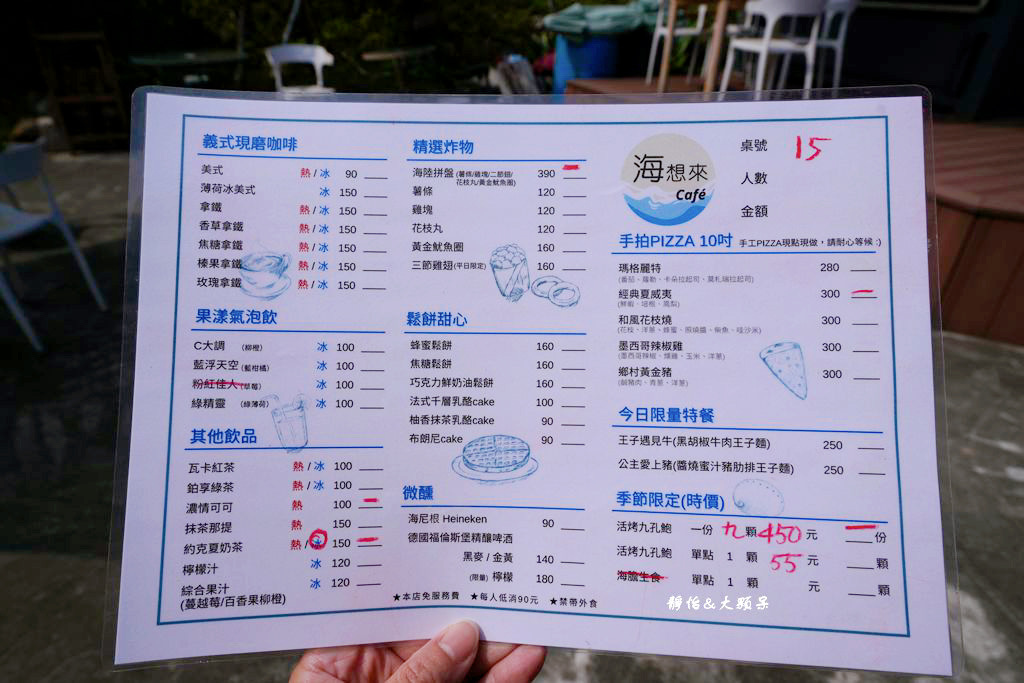 義式現磨咖啡
美式 熱 / 冰 90
薄荷冰美式 冰 150
拿鐵 熱 / 冰 150
香草拿鐵 熱 / 冰 150
焦糖拿鐵 熱 / 冰 150
榛果拿鐵 熱 / 冰 150
玫瑰拿鐵 熱 / 冰 150
果漾氣泡飲
C大調 (柳橙) 冰 100
藍浮天空 (藍柑橘) 冰 100
粉紅佳人 (草莓) 冰 100
綠精靈 (綠薄荷) 冰 100
其他飲品
瓦卡紅茶 熱 / 冰 100
鉑享綠茶 熱 / 冰 100
濃情可可 熱 100
抹茶那提 熱 150
約克夏奶茶 熱 / 冰 150
檸檬汁 冰 120
綜合果汁 冰 120
(蔓越莓/百香果柳橙)
精選炸物
海陸拼盤 (薯條/雞塊/二節翅/ 390
花枝丸/黃金魷魚圈)
薯條 120
雞塊 120
花枝丸 120
黃金魷魚圈 160
三節雞翅 (平日限定) 160
鬆餅甜心
蜂蜜鬆餅 160
焦糖鬆餅 160
巧克力鮮奶油鬆餅 160
法式千層乳酪cake 100
柚香抹茶乳酪cake 90
布朗尼cake 90
微醺
海尼根 Heineken 90
德國福倫斯堡精釀啤酒
黑麥 / 金黃 140
(限量) 檸檬 180
★本店免服務費 ★每人低消90元 ★禁帶外食
海想來
Café
桌號 15
人數
金額
手拍PIZZA 10吋 手工PIZZA現點現做，請耐心等候 :)
瑪格麗特 280
(番茄、羅勒、卡朵拉起司、莫札瑞拉起司)
經典夏威夷 300
(鮮蝦、培根、鳳梨)
和風花枝燒 300
(花枝、洋蔥、蜂蜜、照燒醬、柴魚、哇沙米)
墨西哥辣椒雞 300
(墨西哥辣椒、燻雞、玉米、洋蔥)
鄉村黃金豬 300
(鹹豬肉、青蔥、洋蔥)
今日限量特餐
王子遇見牛(黑胡椒牛肉王子麵) 250
公主愛上豬(醬燒蜜汁豬肋排王子麵) 250
季節限定(時價)
活烤九孔鮑 一份 九 顆 450 元 份
活烤九孔鮑 單點 1 顆 55 元 顆
海膽生食 單點 1 顆 元 顆
靜怡&大顆呆